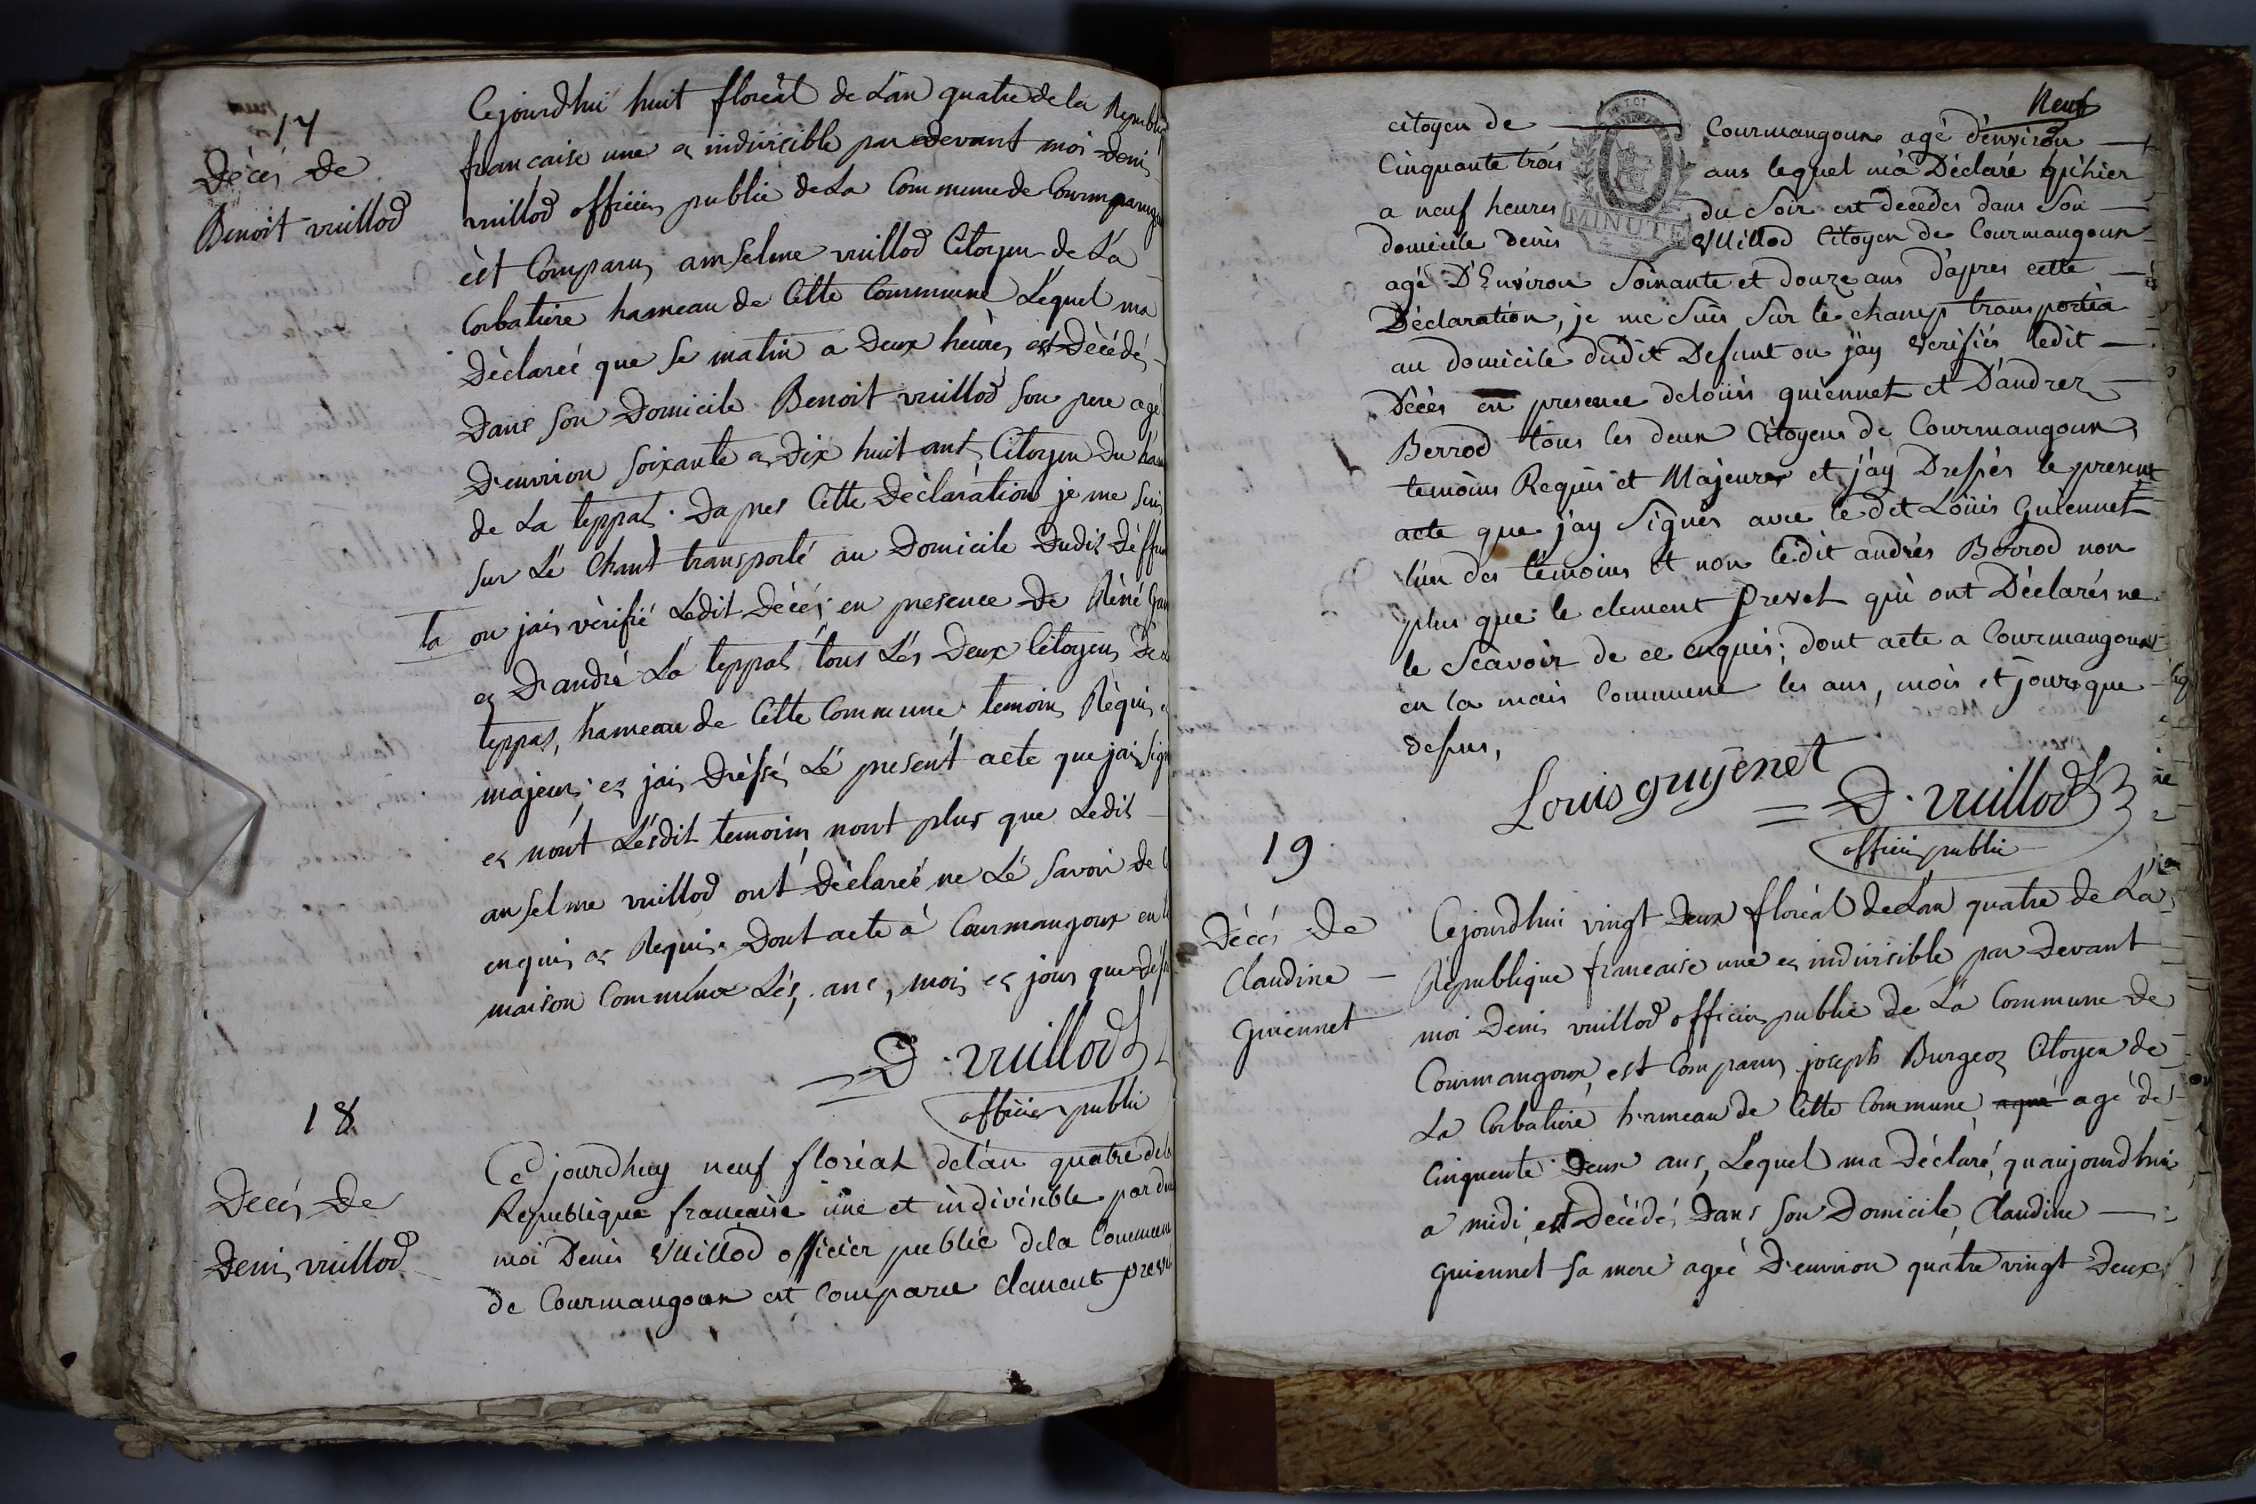 17
Décés De
Benoit vuillod
Cejourdhui huit floréal de Lan quatre de la Republiq
francaise une et indivisible par devant moi Deni
vuillod officier public de La Commune de Courmangou
èst Comparu anselme vuillod Citoyen de La
Corbatiere hameau de Cette Commune Lequel ma
Dèclareé que se matin a Deux heures est Dècédé
Dans son Domicile Benoit vuillod son pere agé
D'environ soixante et Dix huit ans Citoyen Du ham
de La teppat. Dapres Cette Dèclaration je me suis
sur Lé Chant transporté au Domicile Dudit Déffun
ta ou jais vèrifié Ledit Décés en presence De Réné
et D'andré Là teppat tous Lés Deux Citoyens De
teppas, hameau de Cette Commune temoins Réquis
majeurs et jais Drèssés Lé present acte que jais sig
et nont Lésdit temoins nont plus que Ledit
anselme vuillod ont Dèclareé ne Lé savoir de
enquis et Requis Dont acte à Courmangoux en
maison Commune Lés, ans, mois et jour que
D. vuillod
officier public
18
Decés De
Denis vuillod
Ce jourdhuy neuf floréal delàn quatre de
Republique francaise une et indivisible par
moi Denis Vuillod officier public dela Commune
de Courmangoux est comparu clement preve
Neuf
citoyen de Courmangoux agé d'environ
Cinquante trois ans lequel mà Déclaré qu'hier
a neuf heures du soir est décédés dans son
domicile denis Vuillod Citoyen de Courmangoux
agé D'Environ Soixante et douze ans dàpres cette
Déclaration, je me suis sur le champ transportéa
au domicile dudit Defunt ou jày vérifiés ledit
Décès en presence delouis guiennet et D'andrez
Berrod tous les deux Citoyens de Courmangoux
temoins Requis et Majeurs et jày Dressés le present
acte que jày Signés avec le dit Loüis Guiennet
lùn des témoins et non ledit andrés Berrod non
plus que le clement prevet qui ont Déclarés ne
le Scavoir de ce enquis; dont acte a Courmangoux
en la mais Commune les ans, mois et jours que
defsus,
Louis guyenet
D. vuillod
officier public
MINUTE
19
Dècés De
Claudine
guiennet
Cejourdhui vingt Deux floréal de Lan quatre de Là
Republique francaise une et indivisible par Devant
moi Denis vuillod officier public de Là Commune De
Courmangoux, est Comparu joseph Burgeoz Citoyen de
La Corbatiere hameau de Cette Commune agé de
Cinquente Deux ans, Lequel ma Déclaré, quaujourdhui
a midi, est Décédé Dans son Domicile, Claudine
guiennet sa mere ageé D'environ quàtre vingt Deux